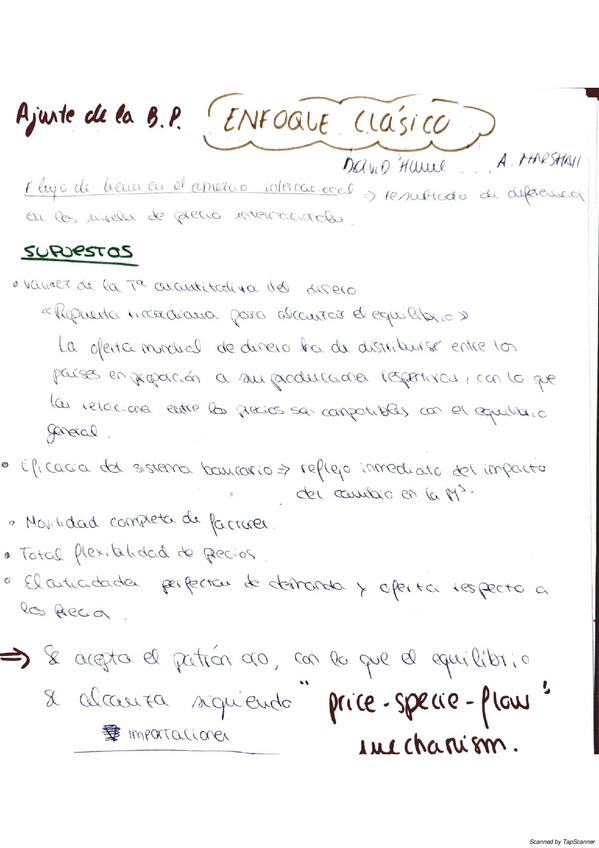 Ajuste de la B.P. ENFOQUE CLÁSICO
DAVID HUME ... A. MARSHALL
Flujo de bienes en el comercio internacional => resultado de diferencia
en los niveles de precio internacionales.
SUPUESTOS
• Validez de la Tª cuantitativa del dinero
"Respuesta ricardiana para alcanzar el equilibrio"
La oferta mundial de dinero ha de distribuirse entre los
países en proporción a sus producciones respectivas, con lo que
las relaciones entre los precios son compatibles con el equilibrio
general.
• Eficacia del sistema bancario => reflejo inmediato del impacto
del cambio en la Mˢ.
• Movilidad completa de factores.
• Total flexibilidad de precios.
• Elasticidades perfectas de demanda y oferta respecto a
los precios.
=> Se acepta el patrón oro, con lo que el equilibrio
se alcanza siguiendo "price-specie-flow"
importaciones mechanism.
Scanned by TapScanner